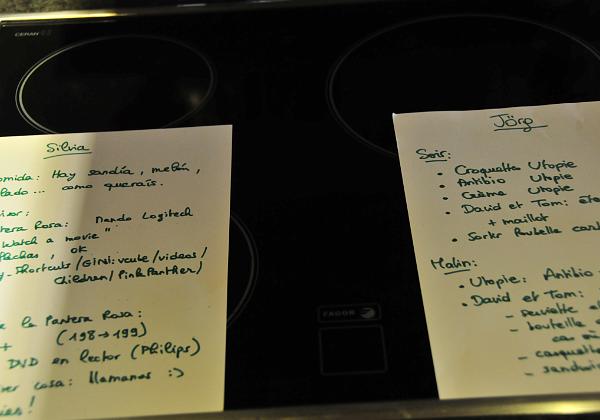 CERAN
Silvia
omida: Hay sandía, melón,
lado... como queráis.
tera Rosa: Mando Logitech
Watch a movie"
flechas, ok
y-Shortcuts/Girei:veute/videos/
Children/PinkPanther/
a la Pantera Rosa:
+ (198→199)
DVD en lector (Philips)
ver cosa: llamanos :)
ies!
FAGOR
Jörg
Soir:
• Croquette Utopie
• Antibio Utopie
• Crème Utopie
• David et Tom:
+ maillot
• Sortir Poubelle
Matin:
• Utopie: Antibio
• David et Tom:
- serviette
- bouteille
- casquette
- sandwi